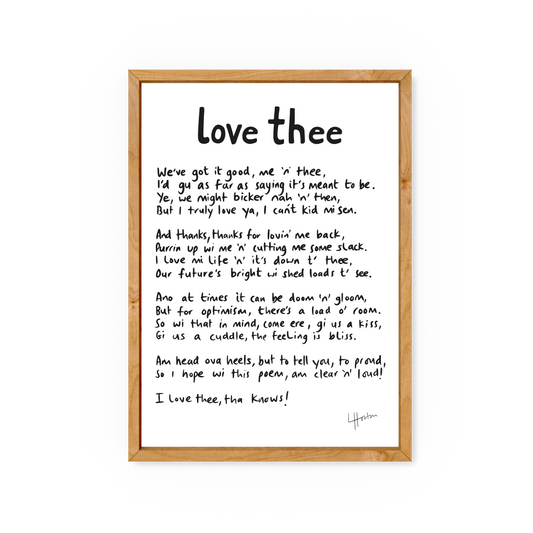 love thee
We've got it good, me 'n' thee,
I'd gu as far as saying it's meant to be.
Ye, we might bicker nah 'n' then,
But I truly love ya, I can't kid misen.
And thanks, thanks for lovin' me back,
Purrin up wi me 'n' cutting me some slack.
I love mi life 'n' it's down t' thee,
Our future's bright wi shed loads t' see.
Ano at times it can be doom 'n' gloom,
But for optimism, there's a load o' room.
So wi that in mind, come ere, gi us a kiss,
Gi us a cuddle, the feeling is bliss.
Am head ova heels, but to tell you, to proud,
So I hope wi this poem, am clear 'n' loud!
I love thee, tha knows!